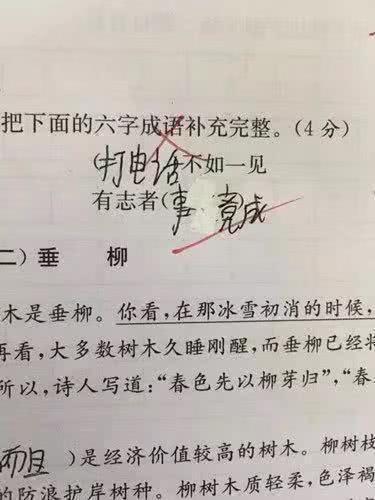 把下面的六字成语补充完整。(4 分)
(打电话不如一见
有志者(事 竟成
二) 垂 柳
木是垂柳。你看,在那冰雪初消的时候,
再看,大多数树木久睡刚醒,而垂柳已经将
所以,诗人写道:“春色先以柳芽归”,“春
而且 )是经济价值较高的树木。柳树枝
的防浪护岸树种。柳树木质轻柔,色泽褐